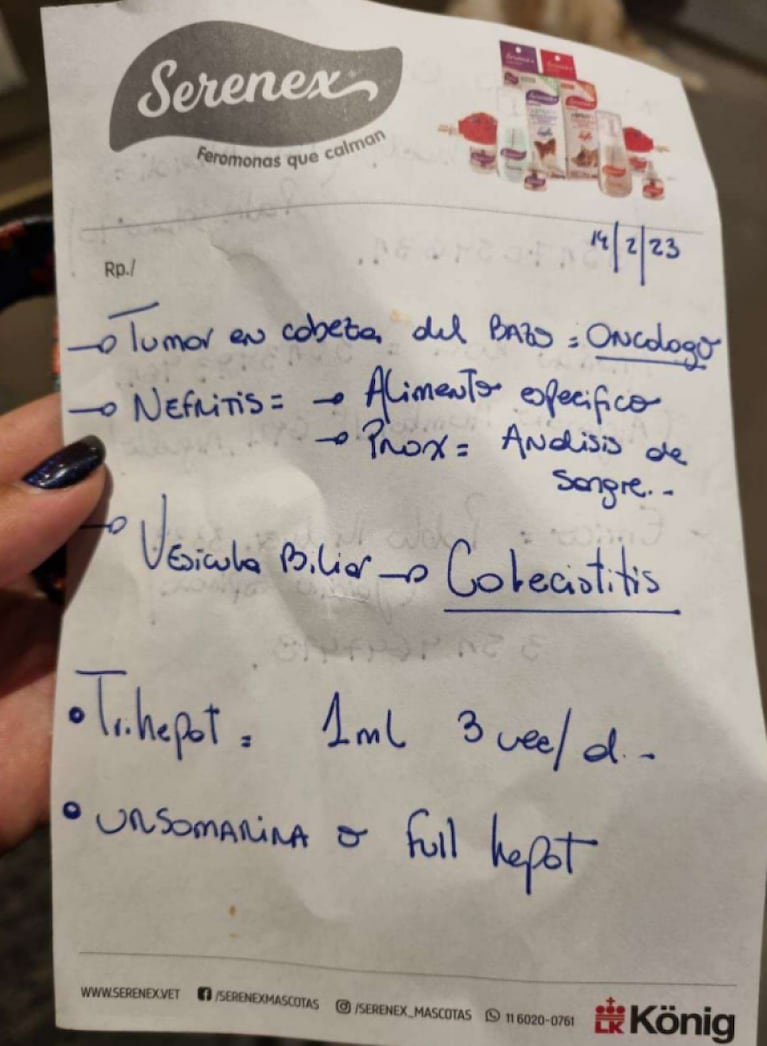 Serenex
Feromonas que calman
14/2/23
Rp./
→ Tumor en cabeza del Bazo = Oncologo
→ Nefritis = → Alimento especifico
→ Prox = Analisis de
sangre..
→ Vesicula Biliar → Colecistitis
• Tri.hepat = 1ml 3 vec/d.-
• URSOMARINA o Full hepat
WWW.SERENEX.VET /SERENEXMASCOTAS /SERENEX_MASCOTAS 11 6020-0761 LK König